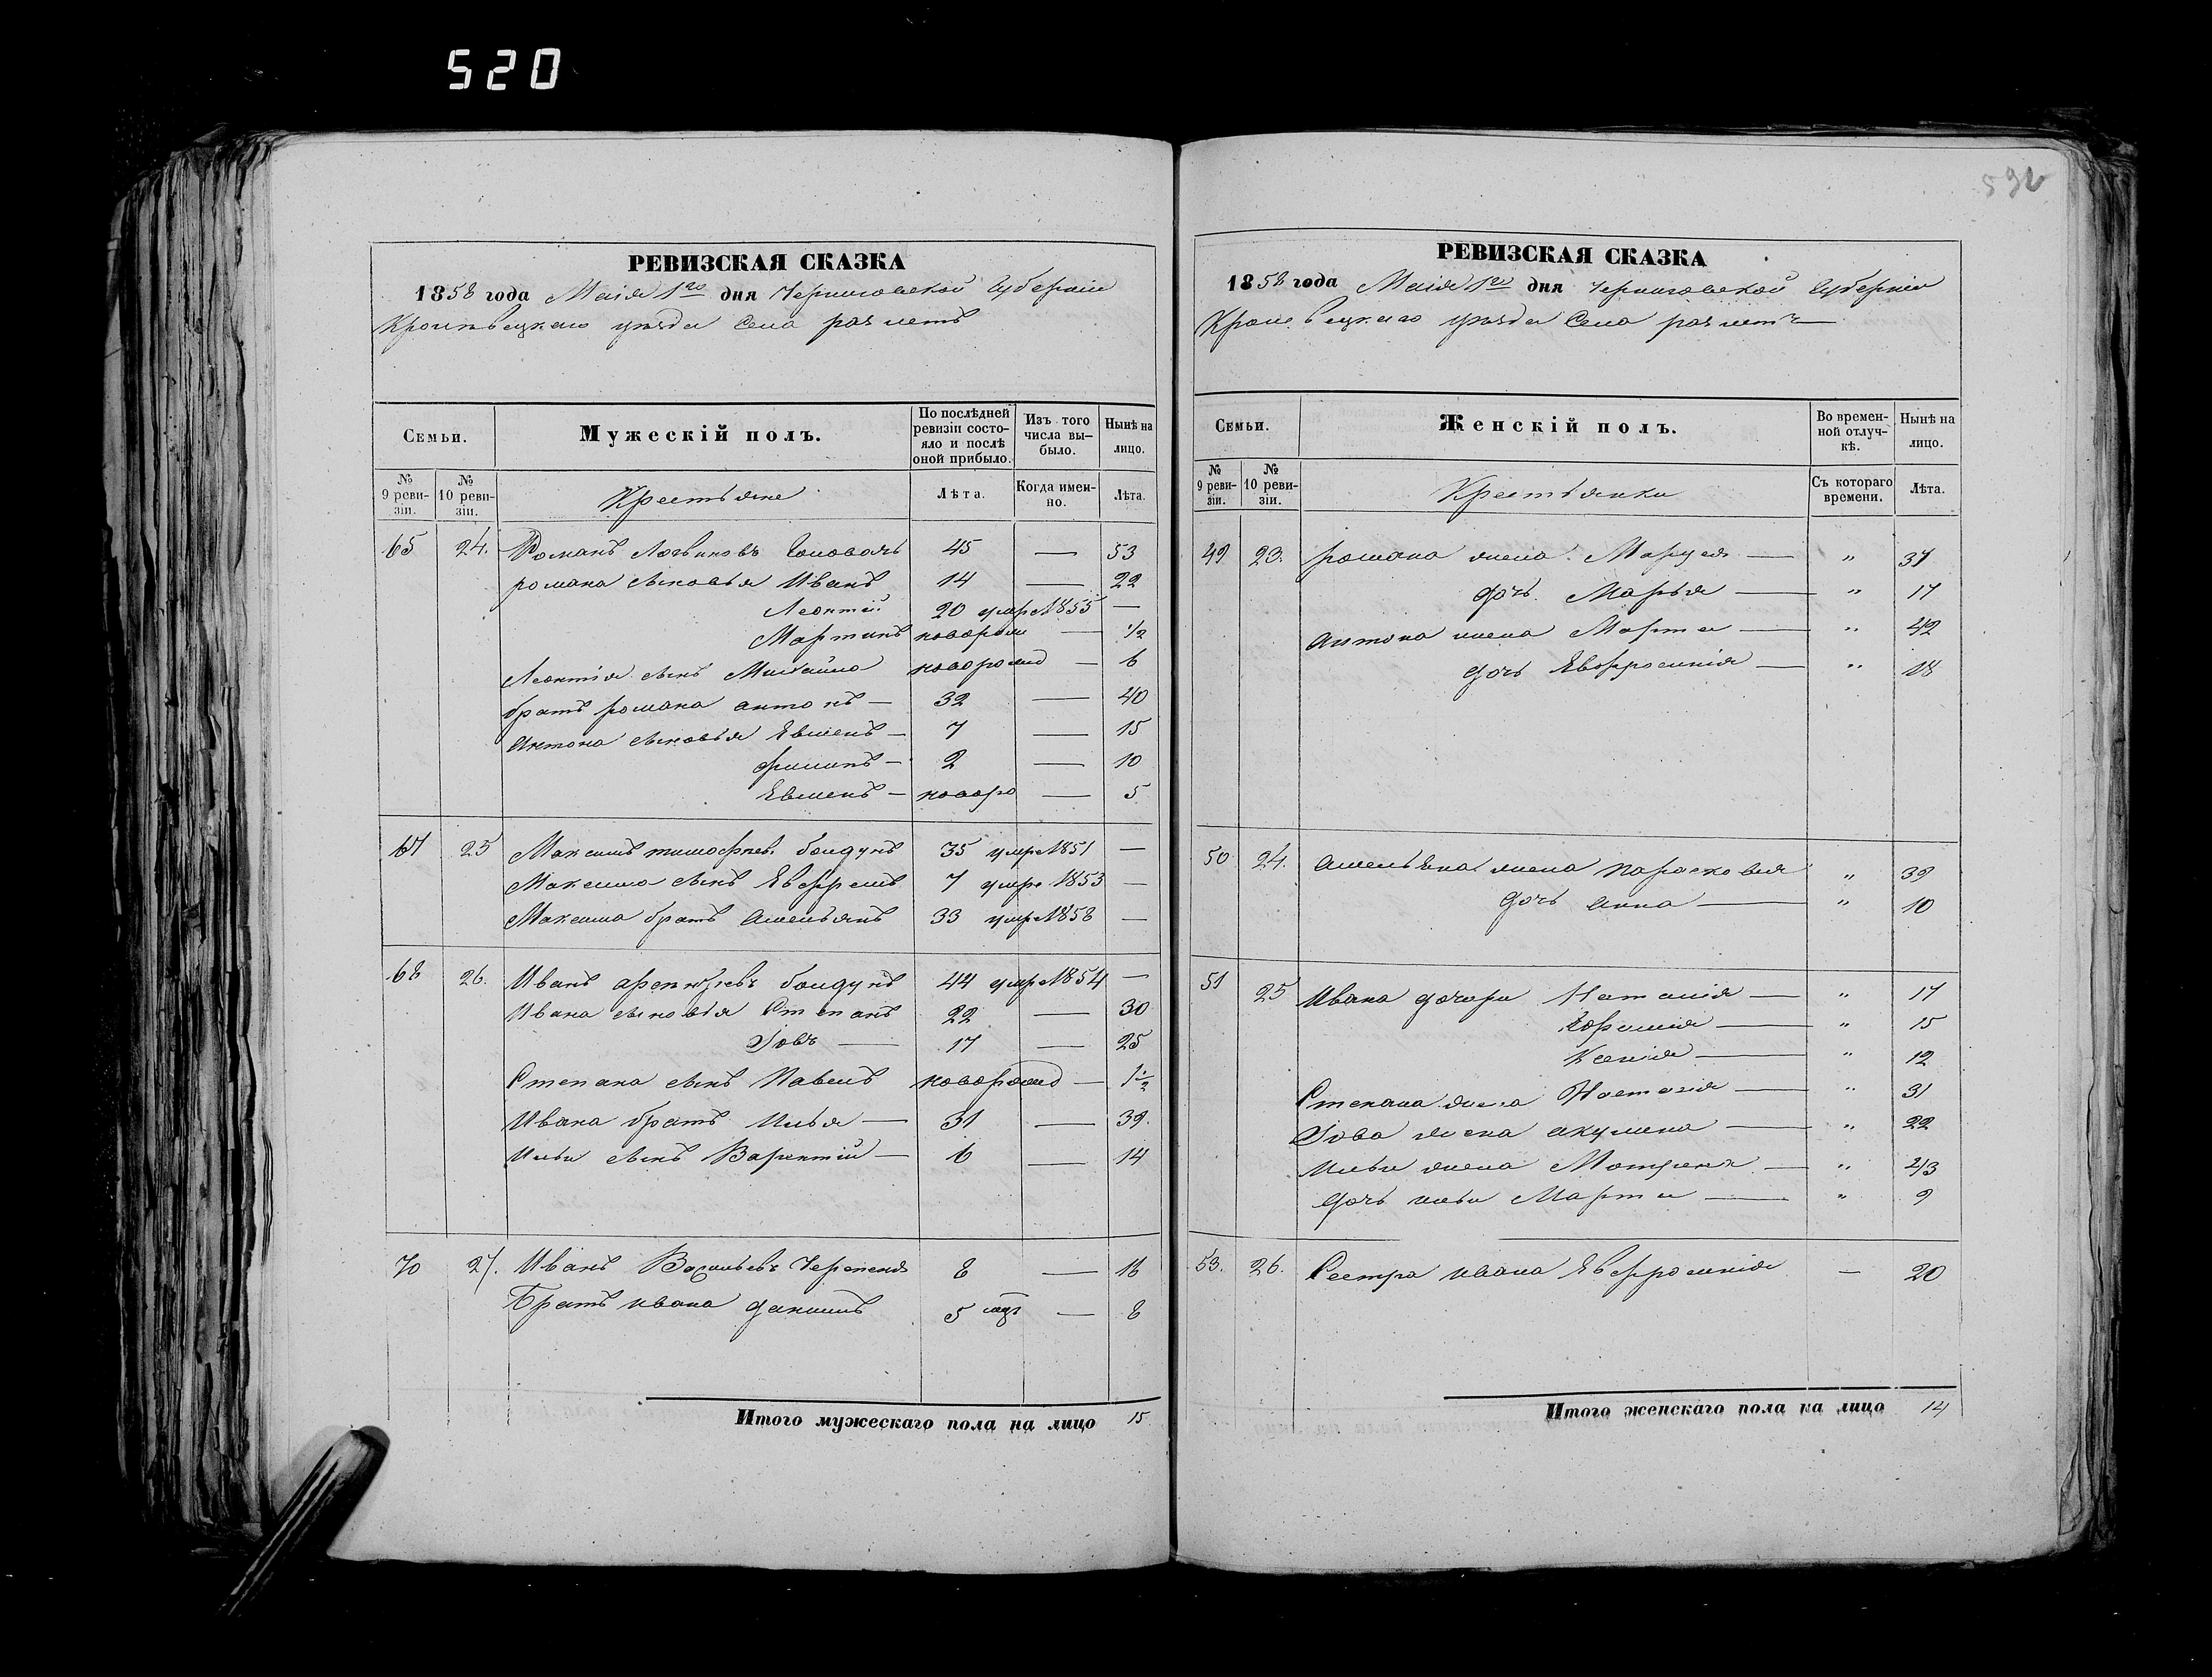 520
592
РЕВИЗСКАЯ СКАЗКА
1858 года Маія 1го дня Черниговской Губерніи
Кролевецкаго уезда Села
Семьи. Мужескій полъ. По послѣдней ревизіи состояло и послѣ оной прибыло. Изъ того числа выбыло. Нынѣ на лицо.
№ 9 ревизіи. № 10 ревизіи. Крестьяне Лѣта. Когда именно. Лѣта.
65 24. Романъ Логвиновъ 45 — 53
романа сыновья Иванъ 14 — 22
Леонтій 20 умре 1855 —
Мартинъ новорож — 1/2
Леонтія сынъ Михайло новорожд — 6
братъ романа антонъ — 32 — 40
Антона сыновья Евменъ — 7 — 15
филипъ — 2 — 10
Евменъ — новоро — 5
67 25 Максимъ тимофѣевъ болдунъ 35 умре 1851 —
Максима сынъ Евфремъ 7 умре 1853 —
Максима братъ Амельянъ 33 умре 1858 —
68 26. Иванъ болдунъ 44 умре 1854 —
Ивана сыновья Степанъ 22 — 30
Іовъ — 17 — 25
Степана сынъ Павелъ новорожд — 1 1/2
Ивана братъ Илья — 31 — 39.
Ильи сынъ — 6 — 14
70 27. Иванъ Васильевъ 8 — 16
Братъ ивана данилъ 5 мцъ — 8
Итого мужескаго пола на лицо 15
РЕВИЗСКАЯ СКАЗКА
1858 года Маія 1го дня Черниговской Губерніи
Кролевецкаго уезда Села
Семьи. Женскій полъ. Во временной отлучкѣ. Нынѣ на лицо.
№ 9 ревизіи. № 10 ревизіи. Крестьянки Съ котораго времени. Лѣта.
49 23. романа жена — " 37
дочь Марья — " 17
антона жена Марта — " 42
дочь Евфросинія — " 18
50 24. амельяна жена парасковія " 39
дочь анна — " 10
51 25 Ивана дочери Наталія — " 17
— " 15
Ксенія — " 12
Степана жена Настасія — " 31
Іова жена акулина — " 22
Ильи жена Мотрона — " 43
дочь ильи Марта — " 9
53. 26. Сестра ивана Евфросинія — 20
Итого женскаго пола на лицо 14